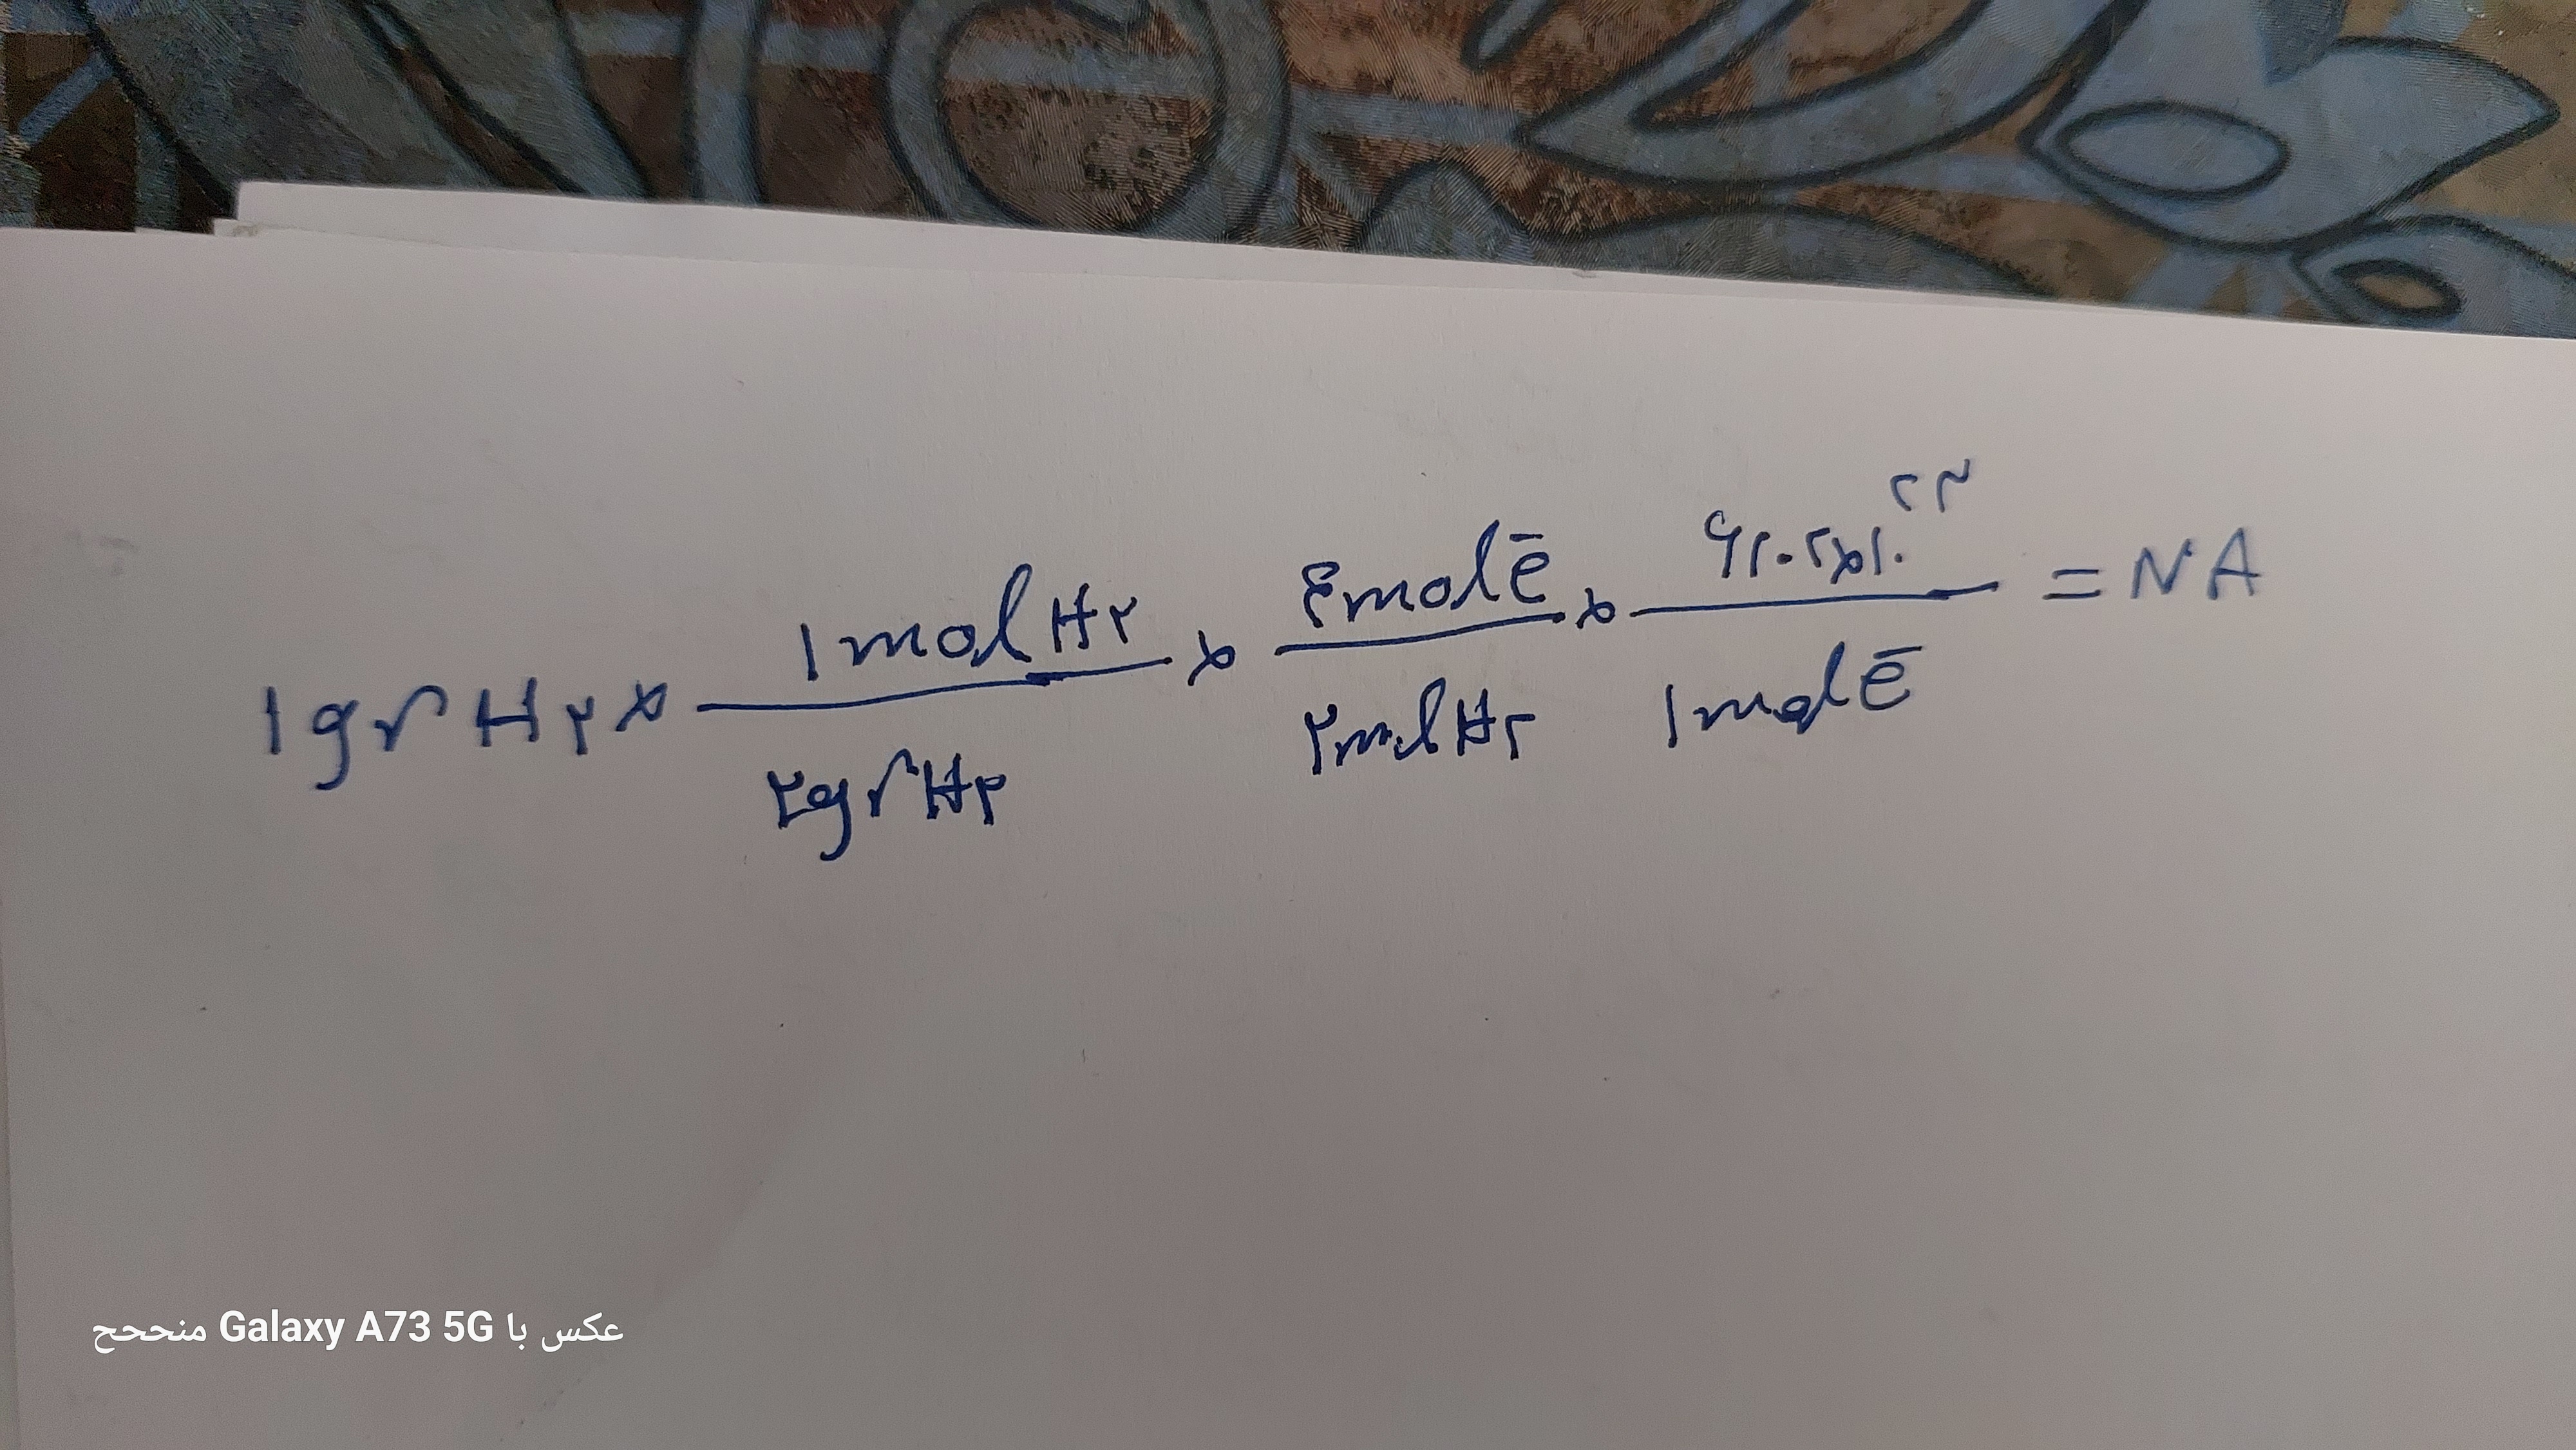 ۱gr H۲ × ۱mol H۲ / ۲gr H۲ × ۴mol ē / ۲mol H۲ × ۶/۰۲×۱۰^۲۳ / ۱mol ē = NA
عکس با Galaxy A73 5G منححح